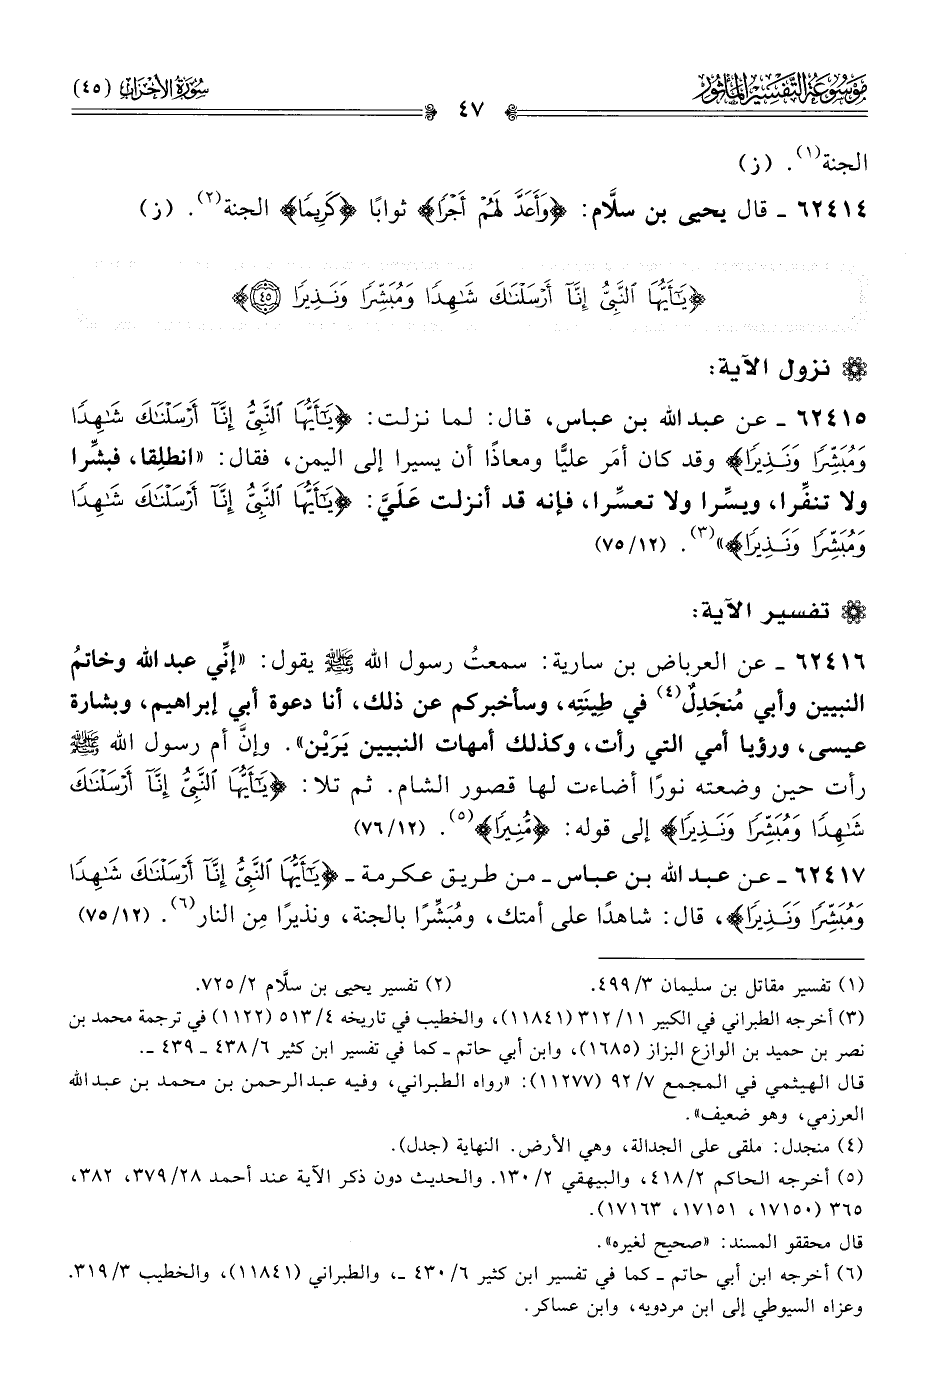 مَوْسُوعَة التَّفْسِير المَأثُور
سُورَةُ الأَحْزَابِ (٤٥)
٤٧
الجنة(١). (ز)
٦٢٤١٤ ـ قال يحيى بن سلَّام: ﴿وَأَعَدَّ لَهُمْ أَجْرًا﴾ ثوابًا ﴿كَرِيمًا﴾ الجنة(٢). (ز)
﴿يَٰٓأَيُّهَا ٱلنَّبِيُّ إِنَّآ أَرْسَلْنَٰكَ شَٰهِدًا وَمُبَشِّرًا وَنَذِيرًا ٤٥﴾
نزول الآية:
٦٢٤١٥ ـ عن عبد الله بن عباس، قال: لما نزلت: ﴿يَٰٓأَيُّهَا ٱلنَّبِيُّ إِنَّآ أَرْسَلْنَٰكَ شَٰهِدًا
وَمُبَشِّرًا وَنَذِيرًا﴾ وقد كان أمَر عليًّا ومعاذًا أن يسيرا إلى اليمن، فقال: «انطلِقا، فبشِّرا
ولا تنفِّرا، ويسِّرا ولا تعسِّرا، فإنه قد أنزلت عَلَيَّ: ﴿يَٰٓأَيُّهَا ٱلنَّبِيُّ إِنَّآ أَرْسَلْنَٰكَ شَٰهِدًا
وَمُبَشِّرًا وَنَذِيرًا﴾»(٣). (١٢/٧٥)
تفسير الآية:
٦٢٤١٦ ـ عن العرباض بن سارية: سمعتُ رسول الله ﷺ يقول: «إنِّي عبد الله وخاتمُ
النبيين وأبي مُنجَدِلٌ(٤) في طِينَتِه، وسأخبركم عن ذلك، أنا دعوة أبي إبراهيم، وبشارة
عيسى، ورؤيا أمي التي رأت، وكذلك أمهات النبيين يَرَيْن». وإنَّ أم رسول الله ﷺ
رأت حين وضعته نورًا أضاءت لها قصور الشام. ثم تلا: ﴿يَٰٓأَيُّهَا ٱلنَّبِيُّ إِنَّآ أَرْسَلْنَٰكَ
شَٰهِدًا وَمُبَشِّرًا وَنَذِيرًا﴾ إلى قوله: ﴿مُّنِيرًا﴾(٥). (١٢/٧٦)
٦٢٤١٧ ـ عن عبد الله بن عباس ـ من طريق عكرمة ـ ﴿يَٰٓأَيُّهَا ٱلنَّبِيُّ إِنَّآ أَرْسَلْنَٰكَ شَٰهِدًا
وَمُبَشِّرًا وَنَذِيرًا﴾، قال: شاهدًا على أمتك، ومُبَشِّرًا بالجنة، ونذيرًا مِن النار(٦). (١٢/٧٥)
(١) تفسير مقاتل بن سليمان ٣/٤٩٩.
(٢) تفسير يحيى بن سلَّام ٢/٧٢٥.
(٣) أخرجه الطبراني في الكبير ١١/٣١٢ (١١٨٤١)، والخطيب في تاريخه ٤/٥١٣ (١١٢٢) في ترجمة محمد بن
نصر بن حميد بن الوازع البزاز (١٦٨٥)، وابن أبي حاتم ـ كما في تفسير ابن كثير ٦/٤٣٨ ـ ٤٣٩ ـ.
قال الهيثمي في المجمع ٧/٩٢ (١١٢٧٧): «رواه الطبراني، وفيه عبد الرحمن بن محمد بن عبد الله
العرزمي، وهو ضعيف».
(٤) منجدل: ملقى على الجدالة، وهي الأرض. النهاية (جدل).
(٥) أخرجه الحاكم ٢/٤١٨، والبيهقي ٢/١٣٠. والحديث دون ذكر الآية عند أحمد ٢٨/٣٧٩، ٣٨٢،
٣٦٥ (١٧١٥٠، ١٧١٥١، ١٧١٦٣).
قال محققو المسند: «صحيح لغيره».
(٦) أخرجه ابن أبي حاتم ـ كما في تفسير ابن كثير ٦/٤٣٠ ـ، والطبراني (١١٨٤١)، والخطيب ٣/٣١٩.
وعزاه السيوطي إلى ابن مردويه، وابن عساكر.